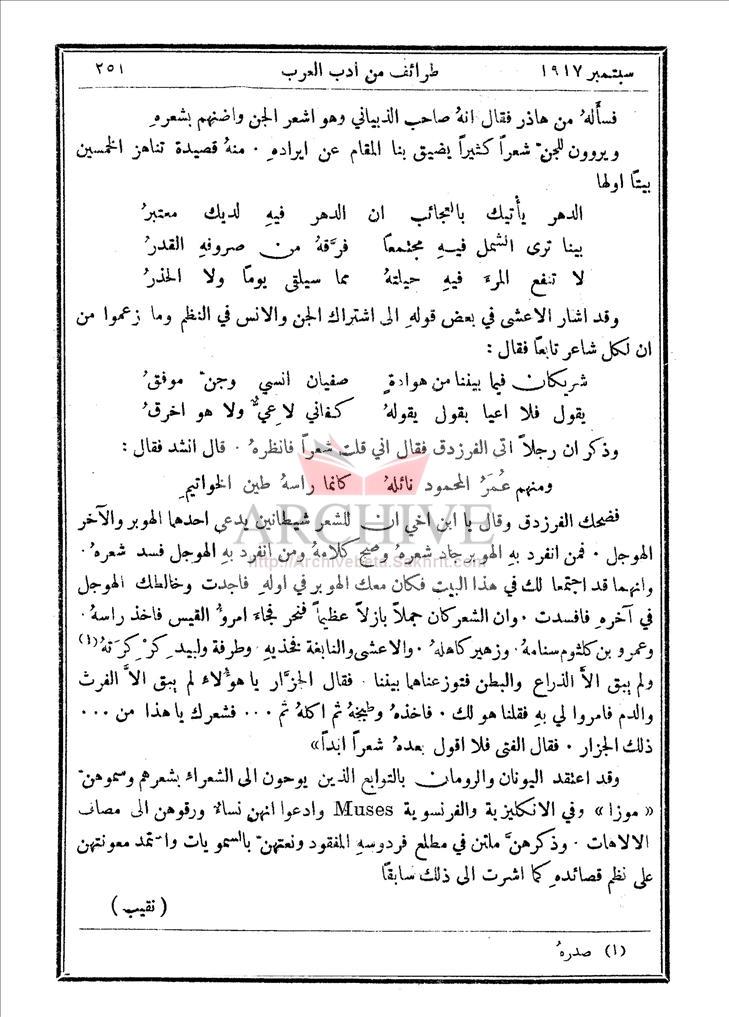 سبتمبر ١٩١٧ طرائف من ادب العرب ٢٥١
فسأله من هاذر فقال انه صاحب الذبياني وهو اشعر الجن واضنهم بشعره
ويروون للجن شعراً كثيراً يضيق بنا المقام عن ايراده . منه قصيدة تناهز الخمسين
بيتاً اولها
الدهر يأتيك بالعجائب ان الدهر فيه لديك معتبرُ
بينا ترى الشمل فيه مجتمعاً فرَّقه من صروفه القدرُ
لا تنفع المرءَ فيه حيلتهُ مما سيلقى يوماً ولا الحذرُ
وقد اشار الاعشى في بعض قوله الى اشتراك الجن والانس في النظم وما زعموا من
ان لكل شاعر تابعاً فقال :
شريكان فيما بيننا من هوادةٍ صفيان انسي وجنّ موفقُ
يقول فلا اعيا بقول يقولهُ كفاني لا عيٌّ ولا هو اخرقُ
وذكر ان رجلاً اتى الفرزدق فقال اني قلت شعراً فانظرهُ . قال انشد فقال :
ومنهم عُمَرُ المحمود نائلهُ كانما راسهُ طين الخواتيمِ
فضحك الفرزدق وقال يا ابن اخي ان للشعر شيطانين يدعى احدهما الهوبر والآخر
الهوجل . فمن انفرد بهِ الهوبر جاد شعرهُ وصح كلامهُ ومن انفرد بهِ الهوجل فسد شعرهُ .
وانهما قد اجتمعا لك في هذا البيت فكان معك الهوبر في اولهِ فاجدت وخالطك الهوجل
في آخرهِ فافسدت . وان الشعر كان جملاً بازلاً عظيماً فنحر فجاءَ امرؤ القيس فاخذ راسهُ .
وعمرو بن كلثوم سنامهُ . وزهير كاهلهُ . والاعشى والنابغة فخذيهِ . وطرفة ولبيد كِرْكِرَتهُ (١)
ولم يبق الاَّ الذراع والبطن فتوزعناهما بيننا . فقال الجزَّار يا هؤلاء لم يبق الاَّ الفرث
والدم فامروا لي بهِ فقلنا هو لك . فاخذهُ وطبخهُ ثم اكلهُ ثم ... فشعرك يا هذا من ...
ذلك الجزار . فقال الفتى فلا اقول بعدهُ شعراً ابداً»
وقد اعتقد اليونان والرومان بالتوابع الذين يوحون الى الشعراء بشعرهم وسموهنّ
« موزا » وفي الانكليزية والفرنسوية Muses وادعوا انهن نساءٌ ورقوهن الى مصاف
الالاهات . وذكرهنَّ ملتن في مطلع فردوسهِ المفقود ونعتهنّ بالسمويات واستمد معونتهن
على نظم قصائده كما اشرت الى ذلك سابقاً
( نقيب )
(١) صدرهُ
ARCHIVE
http://Archivebeta.Sakhrit.com